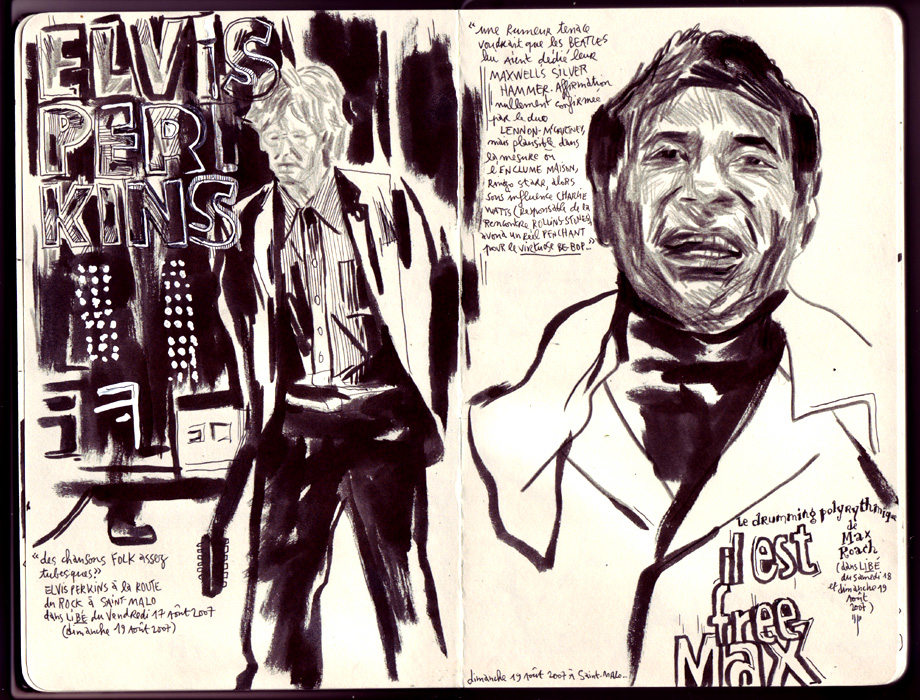 ELViS
PERKINS
"des chansons FOLK assez
tubesques?"
ELVIS PERKINS à la ROUTE
du ROCK à SAINT MALO
dans LIBÉ du Vendredi 17 Août 2007
(dimanche 19 Août 2007)
"une Rumeur tenace
voudrait que les BEATLES
lui aient dédié leur
MAXWELLS SILVER
HAMMER. Affirmation
nullement confirmée
par le duo
LENNON-McCARTNEY,
mais plausible dans
la mesure où
l'ENCLUME MAISON,
Ringo STARR, alors
sous influence CHARLIE
WATTS (responsable de la
Rencontre ROLLING-STONES)
avait un Réel PENCHANT
pour le virtuose BE BOP..."
le drumming polyrythmique
de
Max
Roach
(dans LIBÉ
du samedi 18
et dimanche 19
Août
2007)
il est
free
Max
dimanche 19 Août 2007 à Saint-MALO...